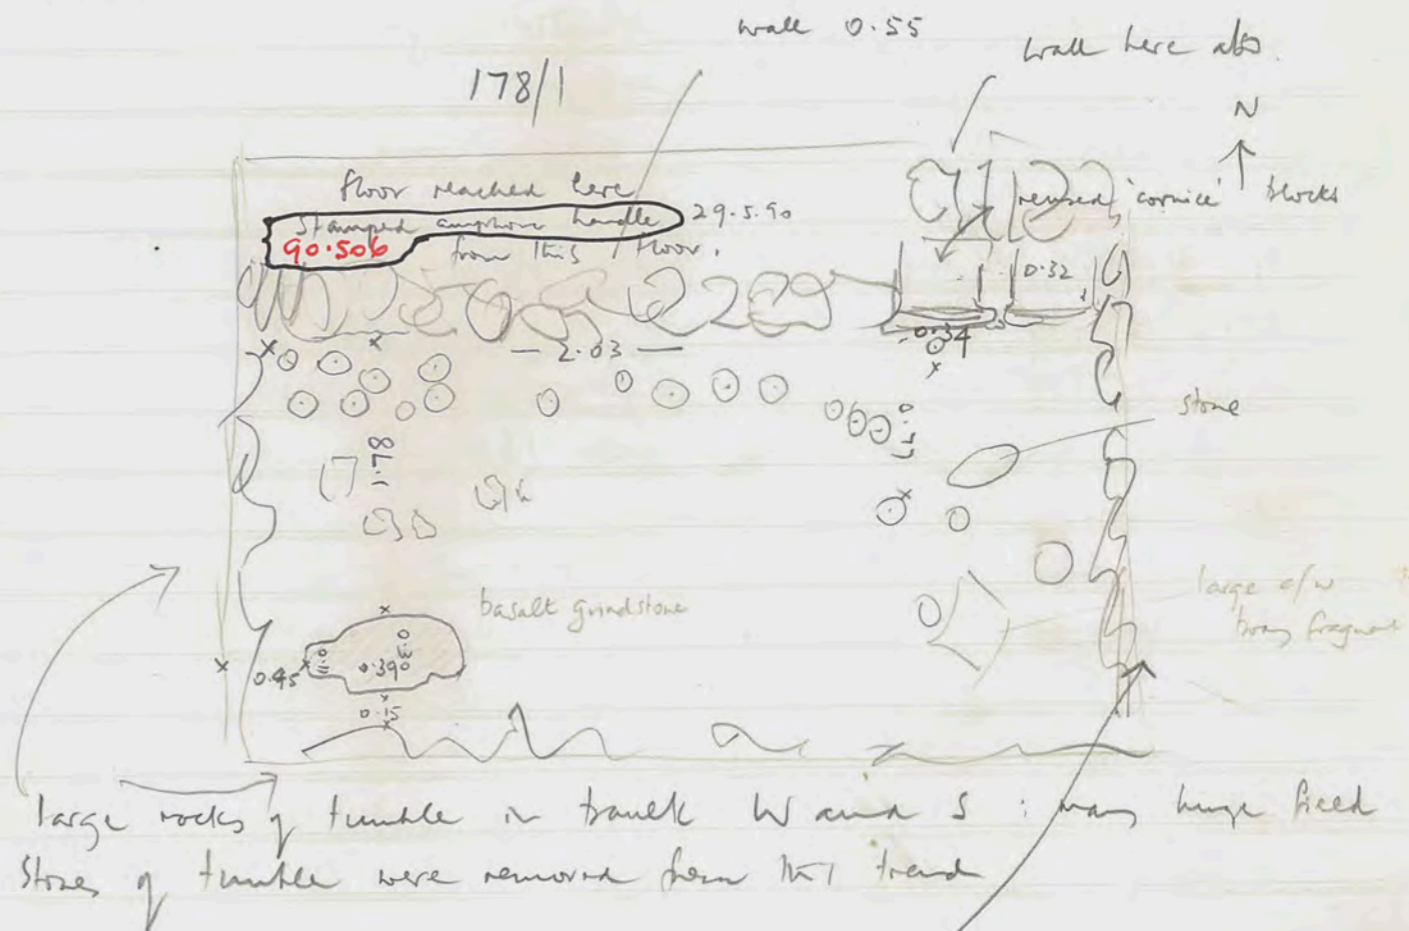 wall 0.55
wall here also.
178/1
N
floor reached here
Stamped amphora handle 29.5.90
90.506
from this floor.
reused 'cornice' blocks
0.32
0.34
— 2.03 —
stone
1.78
basalt grindstone
large c/w
fragment
0.45
0.390
0.15
large rocks of tumble in baulk W and S : many huge field
stones of tumble were removed from this trench